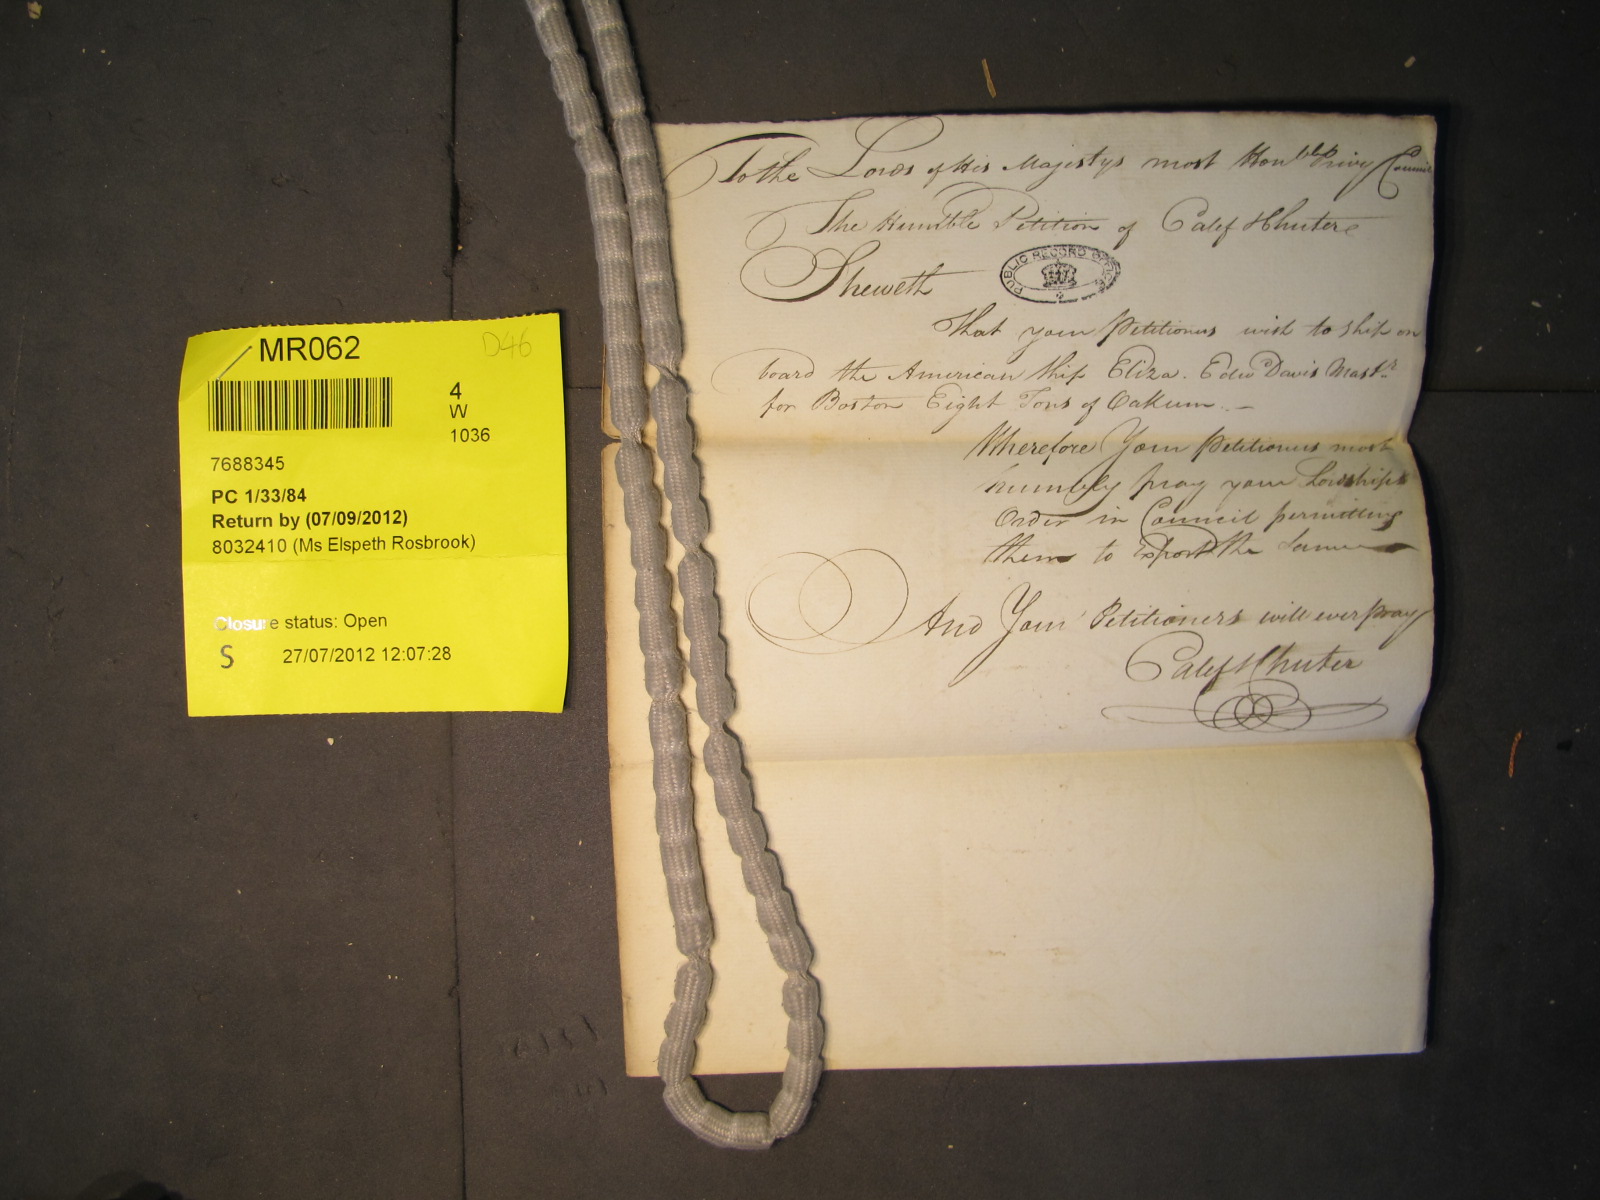 MR062
D46
4
W
1036
7688345
PC 1/33/84
Return by (07/09/2012)
8032410 (Ms Elspeth Rosbrook)
Closure status: Open
S 27/07/2012 12:07:28
To the Lords of His Majestys most Honble Privy Council
The Humble Petition of Calef & Chuter
Sheweth
PUBLIC RECORD OFFICE
That your Petitioners wish to ship on
board the American Ship Eliza. Edwd Davis Mastr
for Boston Eight Tons of Oakum. —
Wherefore Your Petitioners most
humbly pray your Lordships
Order in Council permitting
them to Export the same
And Your Petitioners will ever pray
Calef & Chuter